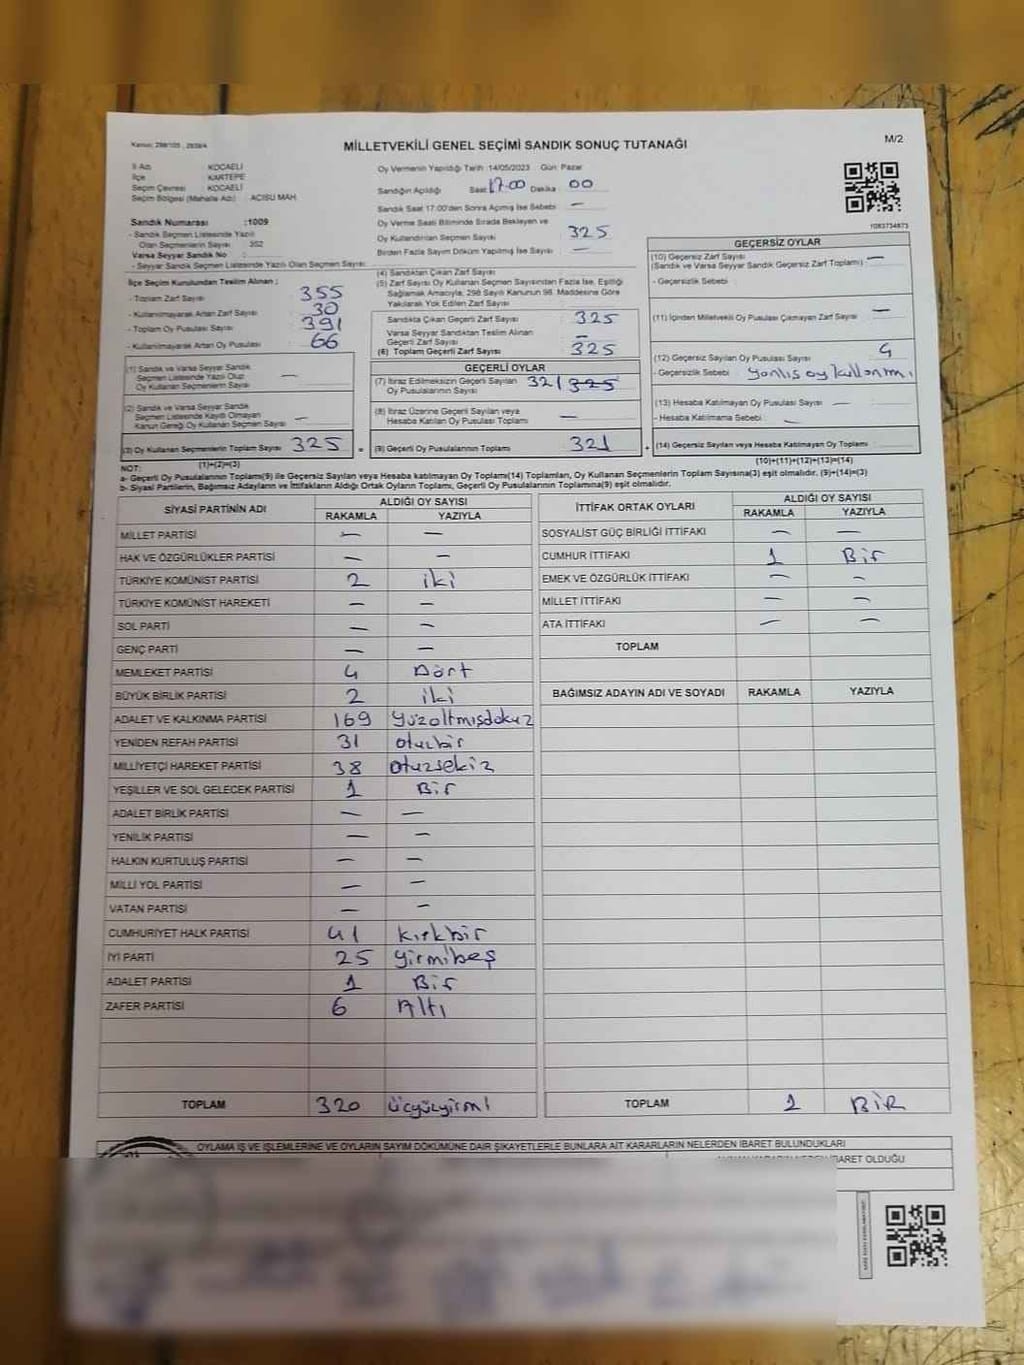 Kanun: 298/105 , 2839/4
MİLLETVEKİLİ GENEL SEÇİMİ SANDIK SONUÇ TUTANAĞI
M/2
İl Adı : KOCAELİ
İlçe : KARTEPE
Seçim Çevresi : KOCAELİ
Seçim Bölgesi (Mahalle Adı) : ACISU MAH.
Sandık Numarası :1009
- Sandık Seçmen Listesinde Yazılı
Olan Seçmenlerin Sayısı 352
Varsa Seyyar Sandık No :
- Seyyar Sandık Seçmen Listesinde Yazılı Olan Seçmen Sayısı:
İlçe Seçim Kurulundan Teslim Alınan ;
- Toplam Zarf Sayısı : 355
- Kullanılmayarak Artan Zarf Sayısı : 30
- Toplam Oy Pusulası Sayısı : 391
- Kullanılmayarak Artan Oy Pusulası : 66
(1) Sandık ve Varsa Seyyar Sandık
Seçmen Listesinde Yazılı Olup
Oy Kullanan Seçmenlerin Sayısı —
(2) Sandık ve Varsa Seyyar Sandık
Seçmen Listesinde Kayıtlı Olmayan
Kanun Gereği Oy Kullanan Seçmenlerin Sayısı —
(3) Oy Kullanan Seçmenlerin Toplam Sayısı 325
Oy Vermenin Yapıldığı Tarih :14/05/2023 Gün: Pazar
Sandığın Açıldığı Saat 17.00 Dakika : 00
Sandık Saat 17:00'den Sonra Açılmış İse Sebebi : —
Oy Verme Saati Bitiminde Sırada Bekleyen ve
Oy Kullandırılan Seçmen Sayısı : 325
Birden Fazla Sayım Döküm Yapılmış İse Sayısı : —
(4) Sandıktan Çıkan Zarf Sayısı :
(5) Zarf Sayısı Oy Kullanan Seçmen Sayısından Fazla İse, Eşitliği
Sağlamak Amacıyla, 298 Sayılı Kanunun 98. Maddesine Göre
Yakılarak Yok Edilen Zarf Sayısı :
Sandıkta Çıkan Geçerli Zarf Sayısı : 325
Varsa Seyyar Sandıktan Teslim Alınan
Geçerli Zarf Sayısı : —
(6) Toplam Geçerli Zarf Sayısı : 325
GEÇERLİ OYLAR
(7) İtiraz Edilmeksizin Geçerli Sayılan
Oy Pusulalarının Sayısı : 321 325
(8) İtiraz Üzerine Geçerli Sayılan veya
Hesaba Katılan Oy Pusulalarının Toplamı : —
(9) Geçerli Oy Pusulalarının Toplamı : 321
1083734873
GEÇERSİZ OYLAR
(10) Geçersiz Zarf Sayısı : —
(Sandık ve Varsa Seyyar Sandık Geçersiz Zarf Toplamı)
- Geçersizlik Sebebi :
(11) İçinden Milletvekili Oy Pusulası Çıkmayan Zarf Sayısı : —
(12) Geçersiz Sayılan Oy Pusulası Sayısı : 4
- Geçersizlik Sebebi : yanlış oy kullanımı
(13) Hesaba Katılmayan Oy Pusulası Sayısı : —
- Hesaba Katılmama Sebebi : —
(14) Geçersiz Sayılan veya Hesaba Katılmayan Oy Toplamı :
NOT: (1)+(2)=(3) (10)+(11)+(12)+(13)=(14)
a- Geçerli Oy Pusulalarının Toplamı(9) ile Geçersiz Sayılan veya Hesaba katılmayan Oy Toplamı(14) Toplamları, Oy Kullanan Seçmenlerin Toplam Sayısına(3) eşit olmalıdır. (9)+(14)=(3)
b- Siyasi Partilerin, Bağımsız Adayların ve İttifakların Aldığı Ortak Oyların Toplamı, Geçerli Oy Pusulalarının Toplamına(9) eşit olmalıdır.
SİYASİ PARTİNİN ADI ALDIĞI OY SAYISI
RAKAMLA YAZIYLA
MİLLET PARTİSİ — —
HAK VE ÖZGÜRLÜKLER PARTİSİ — —
TÜRKİYE KOMÜNİST PARTİSİ 2 iki
TÜRKİYE KOMÜNİST HAREKETİ — —
SOL PARTİ — —
GENÇ PARTİ — —
MEMLEKET PARTİSİ 4 Dört
BÜYÜK BİRLİK PARTİSİ 2 iki
ADALET VE KALKINMA PARTİSİ 169 yüzaltmışdokuz
YENİDEN REFAH PARTİSİ 31 otuzbir
MİLLİYETÇİ HAREKET PARTİSİ 38 otuzsekiz
YEŞİLLER VE SOL GELECEK PARTİSİ 1 Bir
ADALET BİRLİK PARTİSİ — —
YENİLİK PARTİSİ — —
HALKIN KURTULUŞ PARTİSİ — —
MİLLİ YOL PARTİSİ — —
VATAN PARTİSİ — —
CUMHURİYET HALK PARTİSİ 41 kırkbir
İYİ PARTİ 25 yirmibeş
ADALET PARTİSİ 1 Bir
ZAFER PARTİSİ 6 Altı
TOPLAM 320 üçyüzyirmi
İTTİFAK ORTAK OYLARI ALDIĞI OY SAYISI
RAKAMLA YAZIYLA
SOSYALİST GÜÇ BİRLİĞİ İTTİFAKI — —
CUMHUR İTTİFAKI 1 Bir
EMEK VE ÖZGÜRLÜK İTTİFAKI — —
MİLLET İTTİFAKI — —
ATA İTTİFAKI — —
TOPLAM
BAĞIMSIZ ADAYIN ADI VE SOYADI RAKAMLA YAZIYLA
TOPLAM 1 BİR
OYLAMA İŞ VE İŞLEMLERİNE VE OYLARIN SAYIM DÖKÜMÜNE DAİR ŞİKAYETLERLE BUNLARA AİT KARARLARIN NELERDEN İBARET BULUNDUKLARI
İBARET OLDUĞU